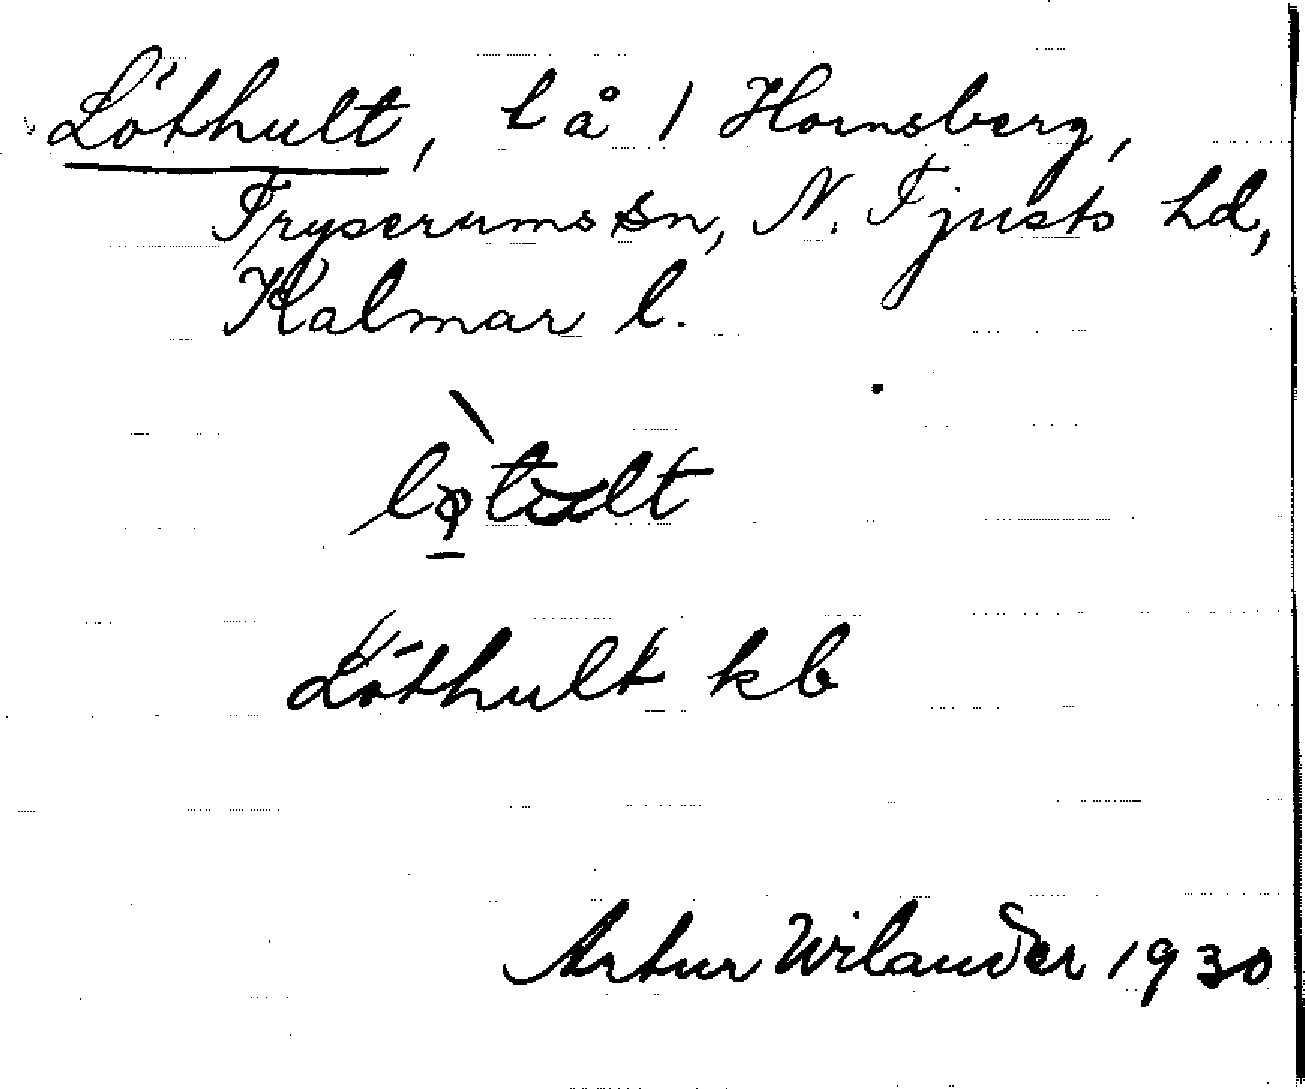 Löthult, l å 1 Hornsberg,
Tryserums sn, N. Tjusts hd,
Kalmar l.
Löthult kb
Artur Wilander 1930